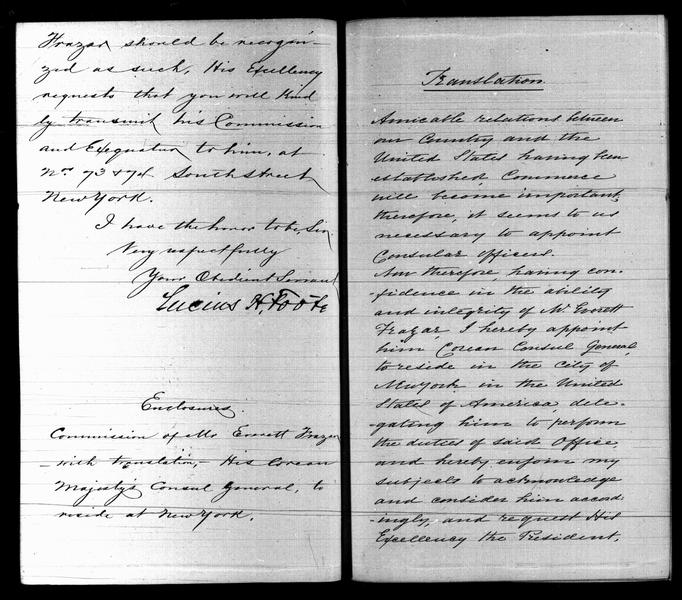 Frazar should be recogni-
zed as such, His Excellency
requests that you will Kind
ly transmit his Commission
and Exequatur to him, at
Nos 73 & 74 South Street
New York.
I have the honor to be, Sir,
Very respectfully
Your Obedient Servant
Lucius H. Foote
Enclosures.
Commission of Mr Everett Frazar
- with translation, - His Corean
Majesty's Consul General, to
reside at New York.
Translation
Amicable relations between
our Country and the
United States having been
established, Commerce
will become important,
therefore, it seems to us
necessary to appoint
Consular Officers.
Now therefore, having con-
-fidence in the ability
and integrity of Mr. Everett
Frazar, I hereby appoint
him Corean Consul General,
to reside in the City of
New York, in the United
States of America, dele-
-gating him to perform
the duties of said Office,
and hereby enjoin my
subjects to acknowledge
and consider him accord-
-ingly, and request His
Excellency the President,